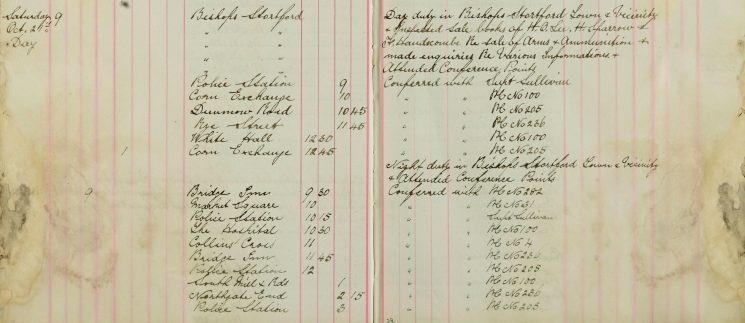 Saturday 9 Bishops Stortford Day duty in Bishops Stortford Town & Vicinity
Oct, 21st " " & Inspected Sale books of H.O. Lee, H. Sparrow &
Day " " Handscombe Re sale of Arms & Ammunition &
" " made enquiries Re Various Informations &
" " Attended Conference Points
Police Station 9 Conferred with Supt Sullivan
Corn Exchange 10 " " PC No 100
Dunmow Road 10 45 " " PC No 205
Rye Street 11 45 " " PC No 236
White Hall 12 30 " " PC No 100
1 Corn Exchange 12 45 " " PC No 205
Night duty in Bishops Stortford Town & Vicinity
& Attended Conference Points
9 Bridge Inn 9 30 Conferred with PC No 282
Market Square 10 " " PC No 31
Police Station 10 15 " " Supt Sullivan
The Hospital 10 30 " " PC No 100
Collins Cross 11 " " PC No 4
Bridge Inn 11 45 " " PC No 230
Police Station 12 " " PC No 205
South Mill & Rds 1 " " PC No 100
Northgate End 2 15 " " PC No 230
Police Station 3 " " PC No 205